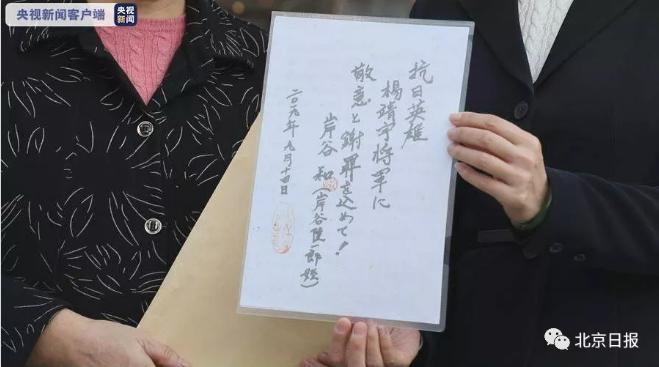 央视新闻客户端
央视新闻
抗日英雄
楊靖宇将軍に
敬意と謝罪を込めて!
岸谷 和(岸谷隆一郎
二〇一九年九月十四日
北京日报